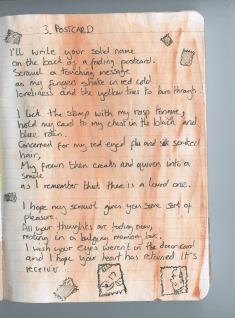 3. POSTCARD
I'll write your solid name
on the back of a fading postcard.
Scrawl a touching message
as my fingers shake in red cold
loneliness and the yellow tries to burn through...
I lick the stamp with my rasp tongue,
hold my card to my chest in the black and
blue rain.
Concerned for my red eyed flu and silk soaked
hair,
My frown then creaks and quivers into a
smile
as I remember that there is a loved one.
I hope my scrawl gives you some sort of
pleasure.
All your thoughts are fading now,
rotting in a bulging memory box.
I wish your eyes weren't in the
and I hope your heart has retained it's
receiver.